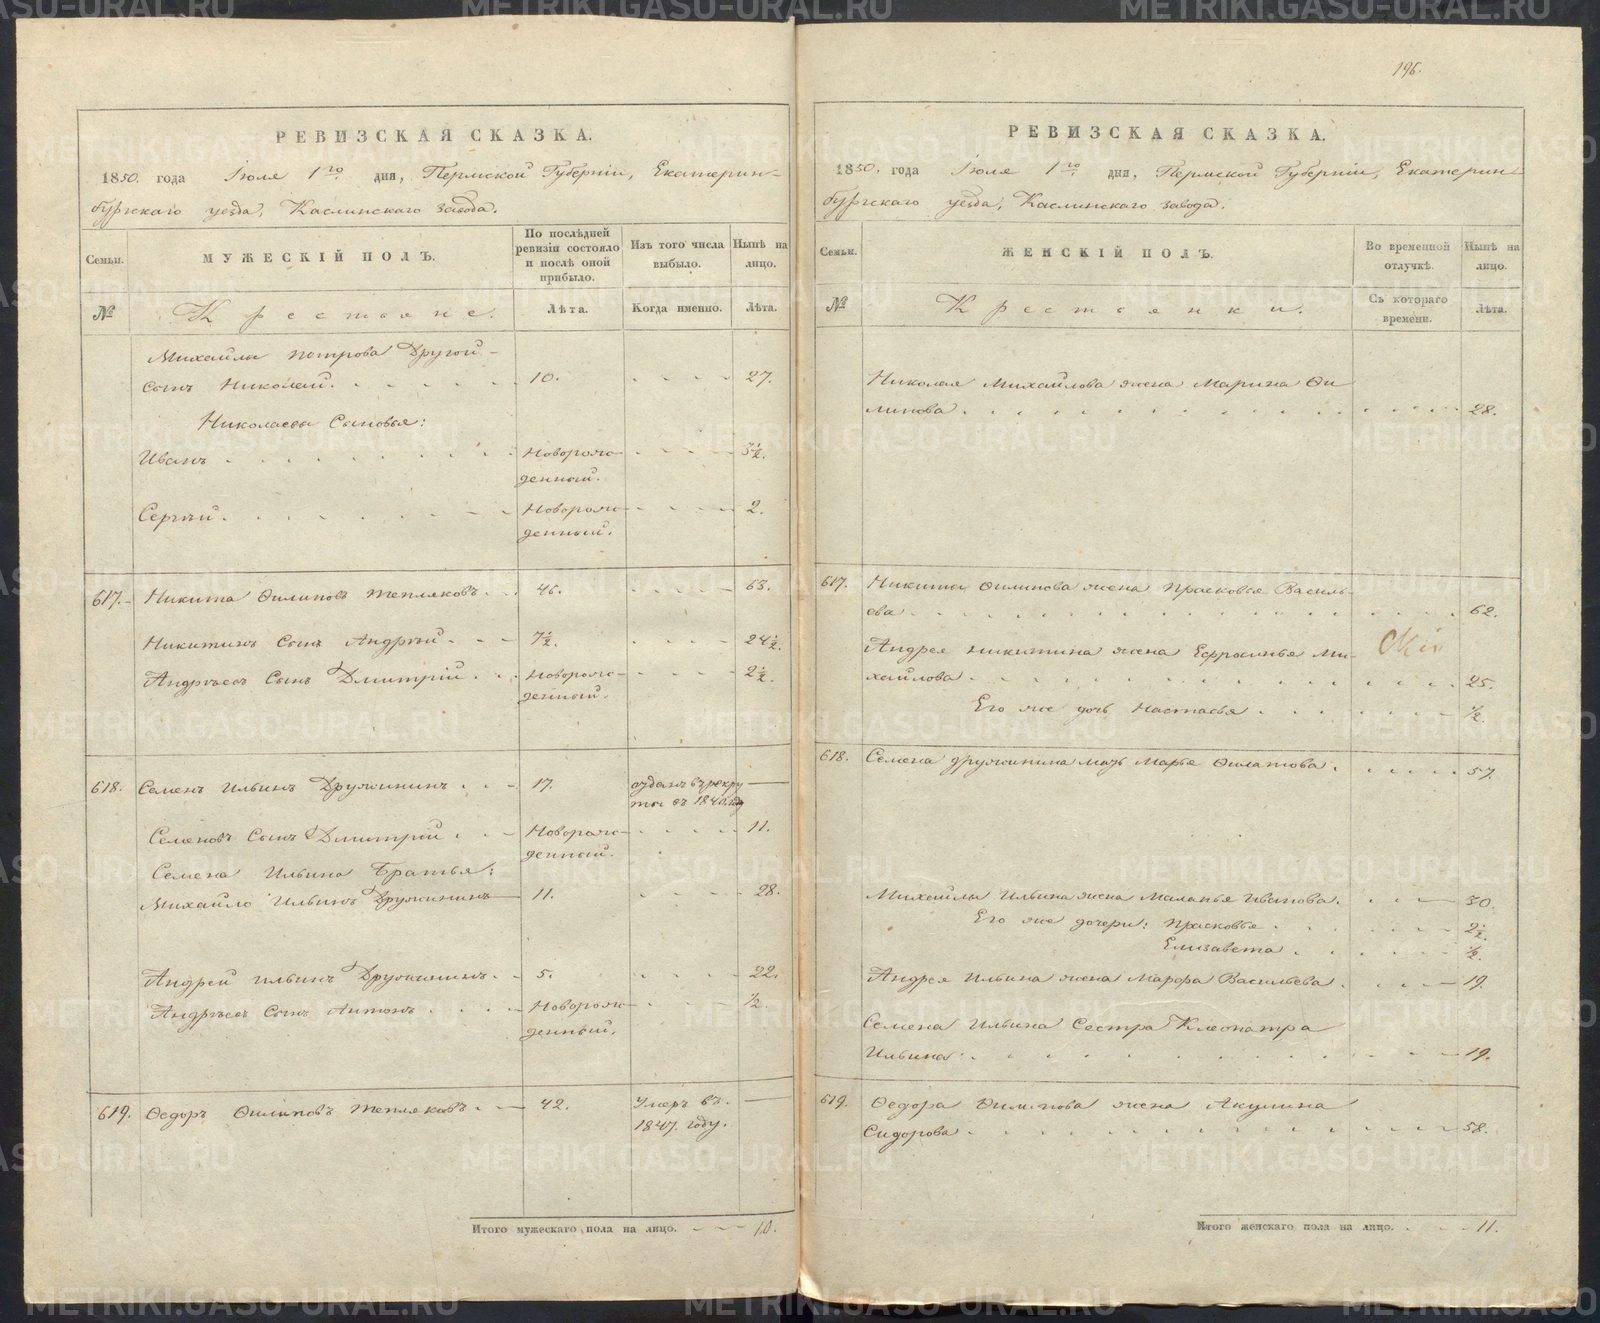 РЕВИЗСКАЯ СКАЗКА.
1850. года Іюля 1го дня, Пермской Губерніи, Екатерин-
бургскаго уезда, Каслинскаго завода.
Семьи.
МУЖЕСКІЙ ПОЛЪ.
По послѣдней ревизіи состояло и послѣ оной прибыло.
Изъ того числа выбыло.
Нынѣ на лицо.
№
Крестьяне.
Лѣта.
Когда именно.
Лѣта.
Михайлы Петрова Другой
Сынъ Николай. 10. 27.
Николаевы Сыновья:
Иванъ Новорож- 3½.
денный.
Сергѣй. Новорож- 2.
денный.
617. Никита Филиповъ Тепляковъ. 46. 63.
Никитинъ Сынъ Андрѣй. 7½. 24½.
Андрѣевъ Сынъ Дмитрій. Новорож- 2½.
денный.
618. Семенъ Ильинъ Дружининъ. 17. отданъ въ рекру
ты въ 1840. году
Семеновъ Сынъ Дмитрій. Новорож- 11.
денный.
Семена Ильина Братья:
Михайло Ильинъ Дружининъ 11. 28.
Андрей Ильинъ Дружининъ. 5. 22.
Андрѣевъ Сынъ Антонъ. Новорож- ½.
денный.
619. Федоръ Филиповъ Тепляковъ. 42. Умеръ въ.
1847. году.
Итого мужескаго пола на лицо. 10.
196.
РЕВИЗСКАЯ СКАЗКА.
1850. года Іюля 1го дня, Пермской Губерніи, Екатерин-
бургскаго уезда, Каслинскаго завода.
Семьи.
ЖЕНСКІЙ ПОЛЪ.
Во временной отлучкѣ.
Нынѣ на лицо.
№
Крестьянки.
Съ котораго времени.
Лѣта.
Николая Михайлова жена Марина Фи
липова. 28.
617. Никиты Филипова жена Прасковья Василь-
ева. 62.
Андрея Никитина жена Ефросинья Ми-
хайлова. 25.
Его же дочь Настасья. ½.
618. Семена Дружинина мать Марье Филатова. 57.
Михайлы Ильина жена Маланья Иванова. 30.
Его же дочери: Прасковья. 2½.
Елизавета. ½.
Андрея Ильина жена Марфа Васильева. 19.
Семена Ильина Сестра Клеопатра
Ильина. 19.
619. Федора Филипова жена Акулина
Сидорова. 58.
Итого женскаго пола на лицо. 11.
METRIKI.GASO-URAL.RU